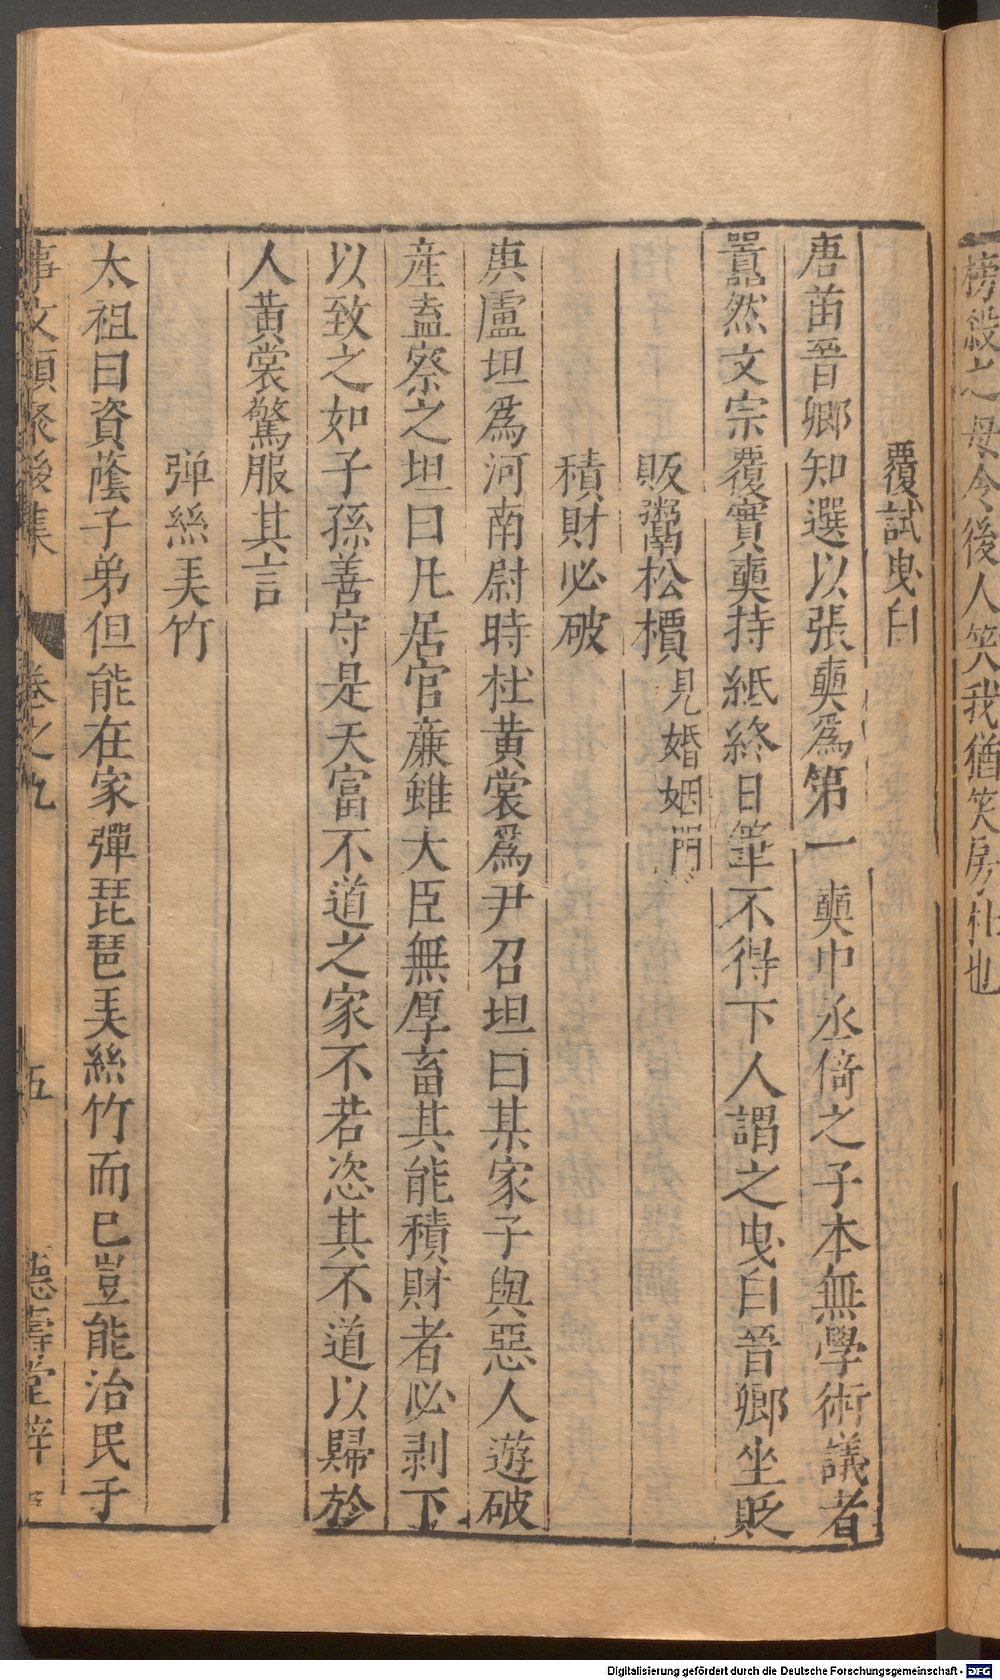 榜殺之母令後人笑我猶笑房杜也
覆試曳白
唐苗晉卿知選以張奭爲第一奭中丞倚之子本無學術議者
囂然文宗覆實奭持紙終日筆不得下人謂之曳白晉卿坐貶
販鬻松檟見婚姻門
積財必破
庾盧坦爲河南尉時杜黃裳爲尹召坦曰某家子與惡人遊破
産盍察之坦曰凡居官廉雖大臣無厚畜其能積財者必剥下
以致之如子孫善守是天富不道之家不若恣其不道以歸於
人黃裳驚服其言
弹絲美竹
太祖曰資蔭子弟但能在家彈琵琶美絲竹而已豈能治民于
事文類聚後集 卷之九 五 德壽堂梓
Digitalisierung gefördert durch die Deutsche Forschungsgemeinschaft - DFG